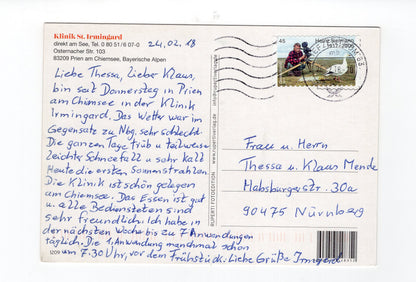 Klinik St. Irmingard
direkt am See, Tel. 0 80 51/6 07-0
Osternacher Str. 103
83209 Prien am Chiemsee, Bayerische Alpen
24.02.18
Liebe Thessa, lieber Klaus,
bin seit Donnerstag in Prien
am Chiemsee in der Klinik
Irmingard. Das Wetter war im
Gegensatz zu Nbg. sehr schlecht.
Die ganzen Tage trüb u teilweise
leichter Schneefall u sehr kalt
Heute die ersten Sonnenstrahlen.
Die Klinik ist schön gelegen
am Chiemsee. Das Essen ist gut
u. alle Bediensteten sind
sehr freundlich. Ich habe in
der nächsten Woche bis zu 7 Anwendungen
täglich. Die 1. Anwendung manchmal schon
um 7.30 Uhr, vor dem Frühstück. Liebe Grüße Irmgard
1209
RUPERTI FOTOEDITION
www.rupertiverlag.de
45
Heinz Sielmann
1917-2006
Frau u. Herrn
Thessa u. Klaus Mende
Habsburgerstr. 30a
90475 Nürnberg